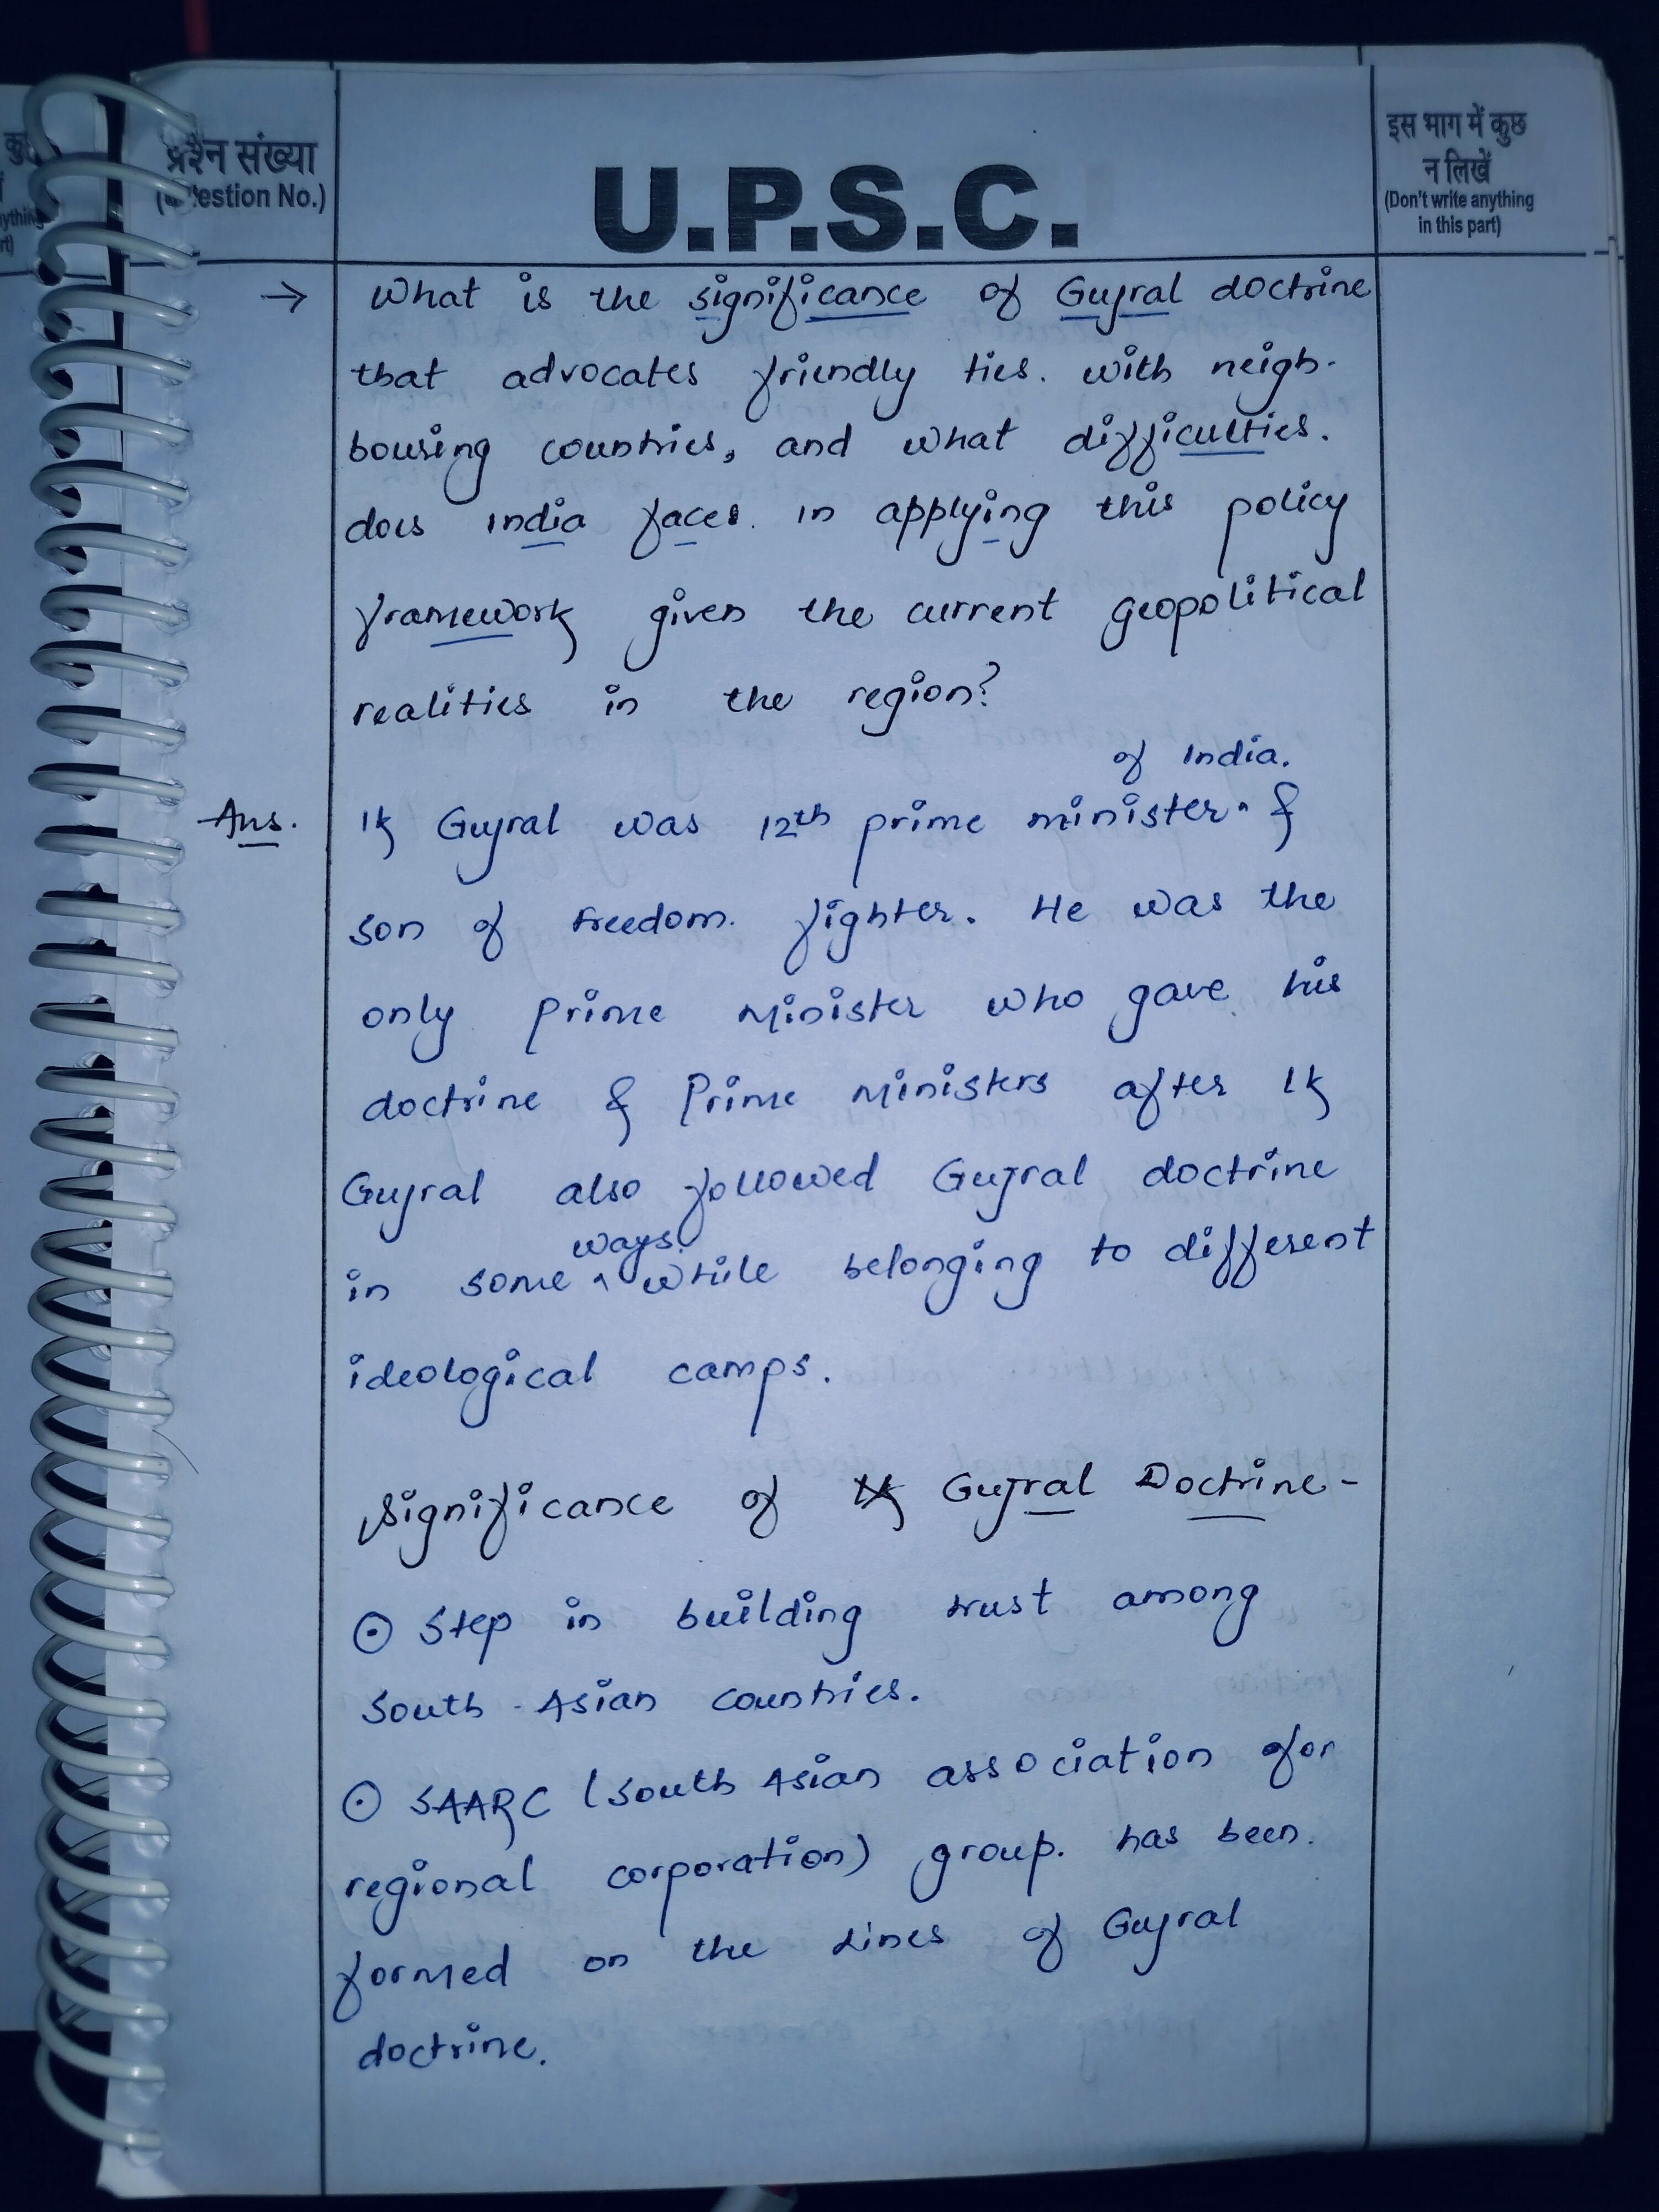 प्रश्न संख्या
(Question No.)
U.P.S.C.
इस भाग में कुछ
न लिखें
(Don't write anything
in this part)
→ What is the significance of Gujral doctrine
that advocates friendly ties. with neigh-
bouring countries, and what difficulties.
does india faces in applying this policy
framework given the current geopolitical
realities in the region?
of India.
Ans. IK Gujral was 12th prime minister ^ &
son of freedom. fighter. He was the
only Prime Minister who gave his
doctrine & Prime Ministers after IK
Gujral also followed Gujral doctrine
ways.
in some ^ while belonging to different
ideological camps.
Significance of Gujral Doctrine-
⊙ Step in building trust among
South-Asian countries.
⊙ SAARC (South Asian association for
regional corporation) group. has been.
formed on the lines of Gujral
doctrine.